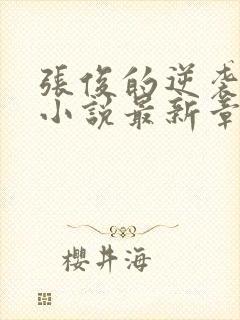 張俊的逆袭
小說最新章
櫻井海